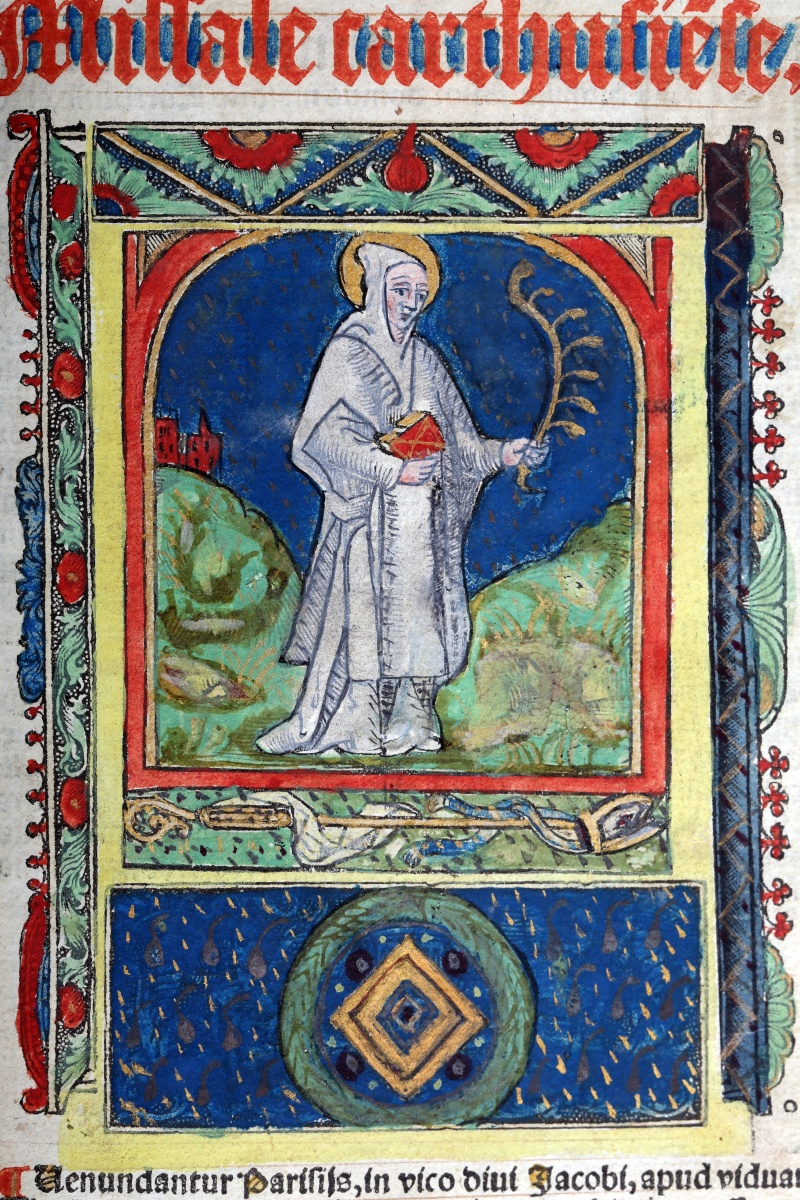 Missale carthusiẽse,
¶ Uenundantur Parisijs, in vico diui Jacobi, apud viduam